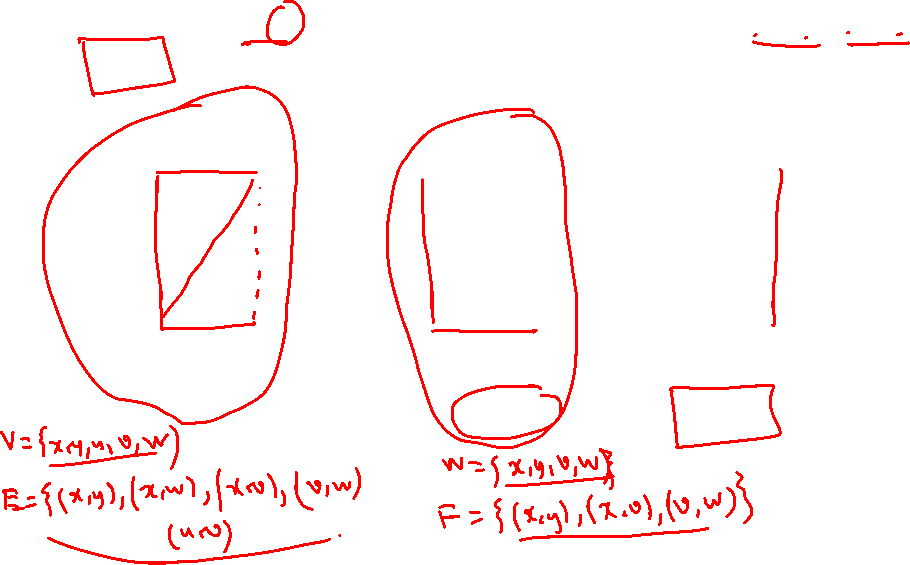 V={x,y,u,v,w}
E={(x,y),(x,w),(x,v),(v,w)
(u,v)
W={x,y,v,w}
F={(x,y),(x,v),(v,w)}